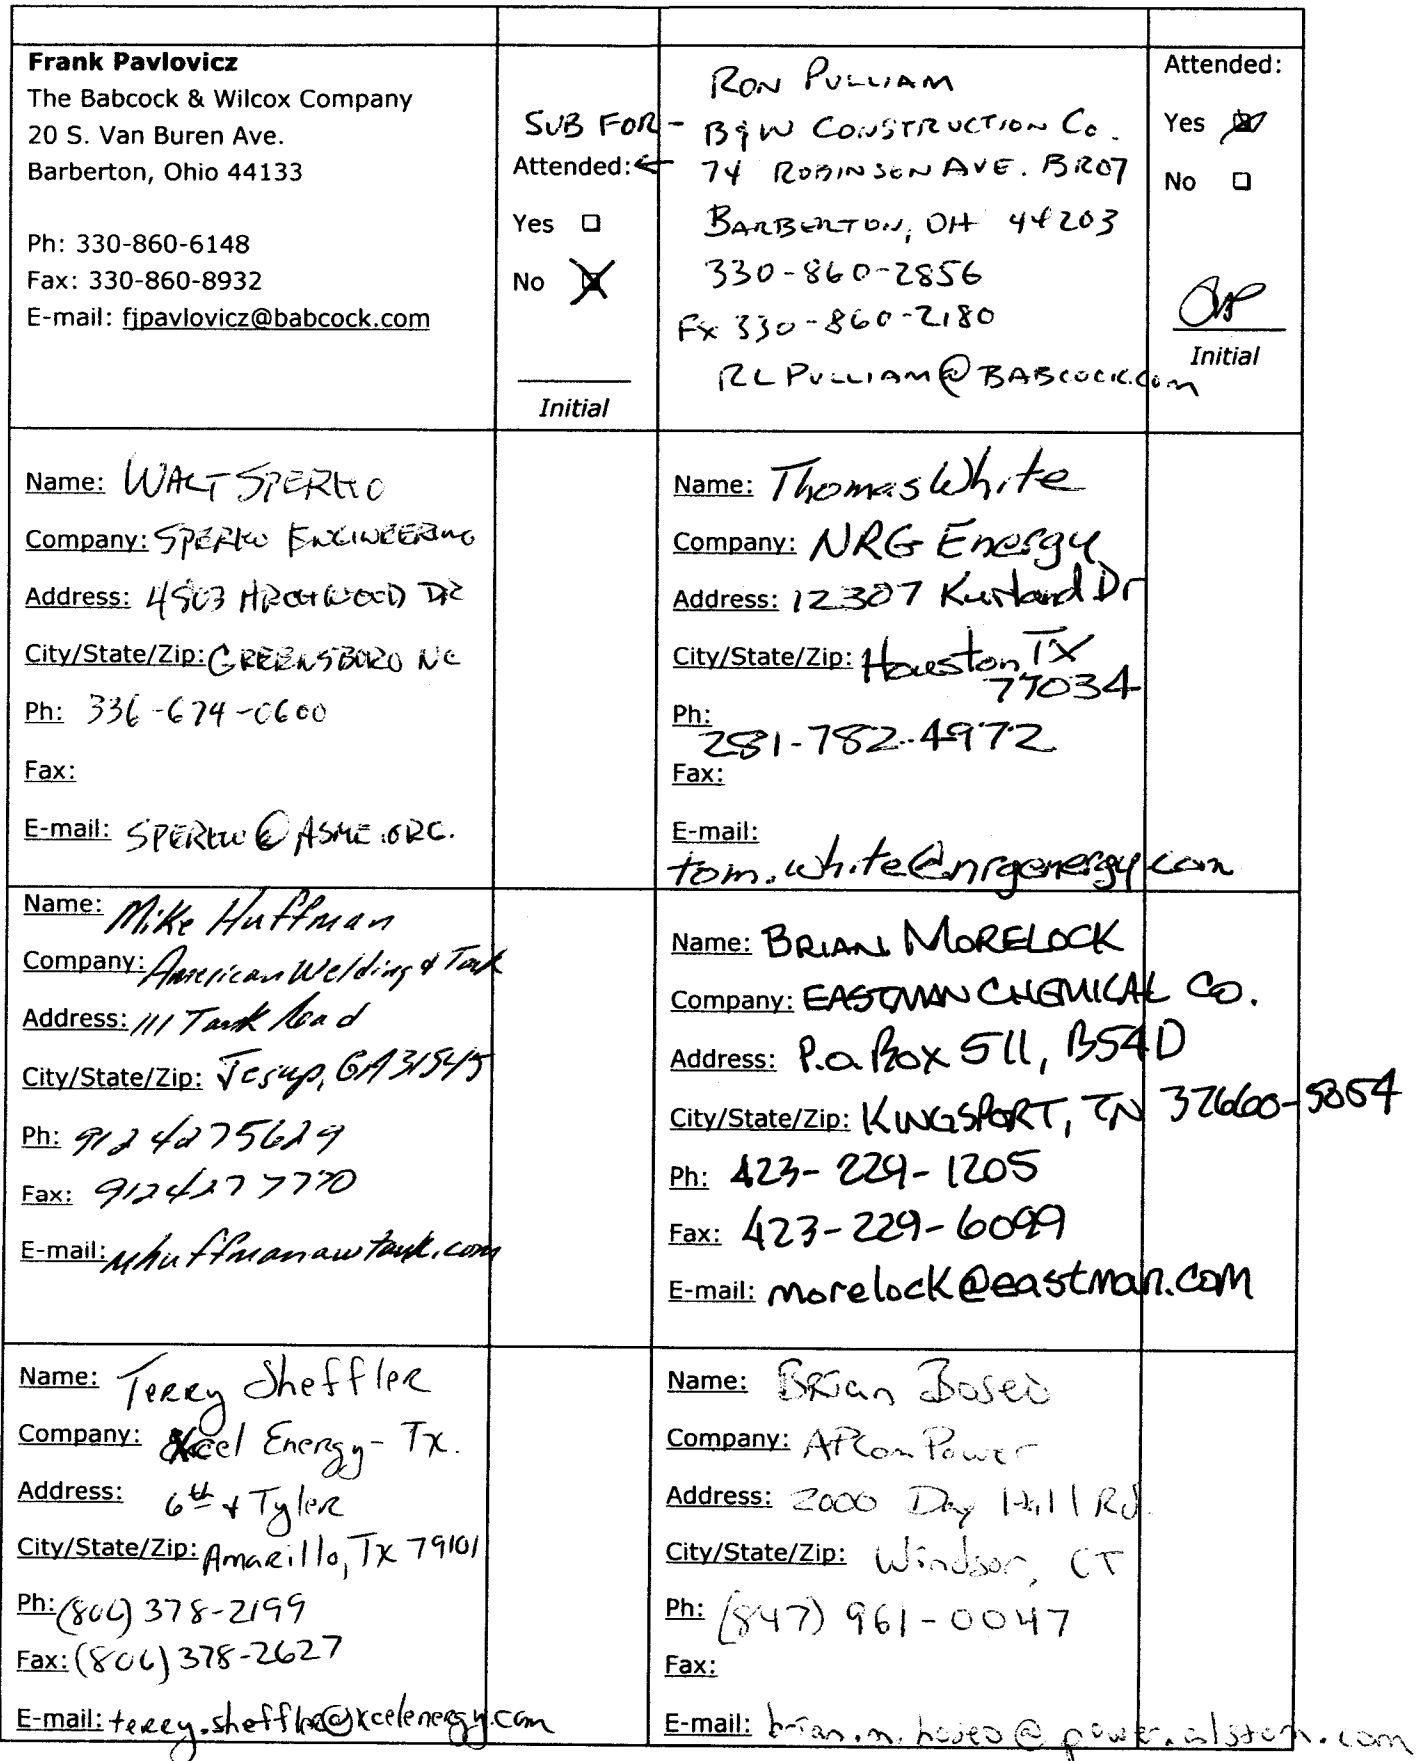 Frank Pavlovicz
The Babcock & Wilcox Company
20 S. Van Buren Ave.
Barberton, Ohio 44133
Ph: 330-860-6148
Fax: 330-860-8932
E-mail: fjpavlovicz@babcock.com
SUB FOR -
Attended: ←
Yes
No
Initial
RON PULLIAM
B&W CONSTRUCTION Co.
74 ROBINSON AVE. BR07
BARBERTON, OH 44203
330-860-2856
Fx 330-860-2180
RLPULLIAM@BABCOCK.com
Attended:
Yes
No
Initial
Name: WALT SPERKO
Company: SPERKO ENGINEERING
Address: 4803 DR
City/State/Zip: GREENSBORO NC
Ph: 336-674-0600
Fax:
E-mail: SPERKO@ASME.ORG.
Name: Thomas White
Company: NRG Energy
Address: 12307 Kurland Dr
City/State/Zip: Houston, TX
77034
Ph:
281-782-4972
Fax:
E-mail:
tom.white@nrgenergy.com
Name: Mike Huffman
Company: American Welding & Tank
Address: 111 Tank Road
City/State/Zip: Jesup, GA 31545
Ph: 912 4275629
Fax: 912 427 7770
E-mail: mhuffmanawtank.com
Name: BRIAN MORELOCK
Company: EASTMAN CHEMICAL CO.
Address: P.O. Box 511, B54D
City/State/Zip: KINGSPORT, TN 37660-5054
Ph: 423-229-1205
Fax: 423-229-6099
E-mail: morelock@eastman.com
Name: Terry Sheffler
Company: Xcel Energy - Tx.
Address: 6th & Tyler
City/State/Zip: Amarillo, Tx 79101
Ph: (806) 378-2199
Fax: (806) 378-2627
E-mail: terry.sheffler@xcelenergy.com
Name: Brian Boseo
Company: Power
Address: 2000 Day Hill Rd.
City/State/Zip: Windsor, CT
Ph: (847) 961-0047
Fax:
E-mail: brian.m.boseo@power.alstom.com